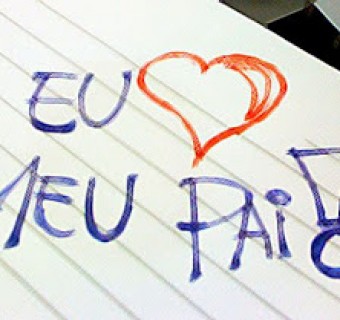 EU ❤
MEU PAi!